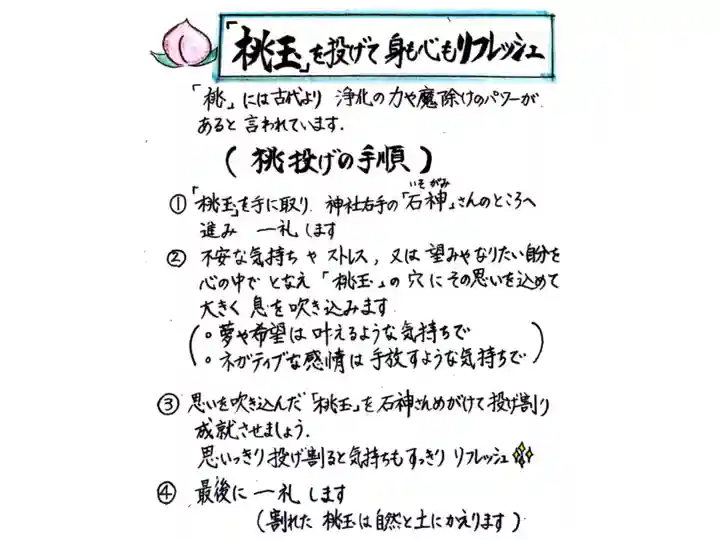 「桃玉」を投げて身も心もリフレッシュ
「桃」には古代より 浄化の力や魔除けのパワーが
あると言われています.
(桃投げの手順)
①「桃玉」を手に取り、神社右手の「石神」さんのところへ
いそがみ
進み 一礼します
② 不安な気持ちやストレス, 又は望みやなりたい自分を
心の中でとなえ「桃玉」の穴にその思いを込めて
大きく息を吹き込みます
(。夢や希望は叶えるような気持ちで
。ネガティブな感情は手放すような気持ちで)
③ 思いを吹き込んだ「桃玉」を石神さんめがけて投げ割り
成就させましょう.
思いっきり投げ割ると気持ちもすっきりリフレッシュ✨
④ 最後に一礼します
(割れた桃玉は自然と土にかえります)